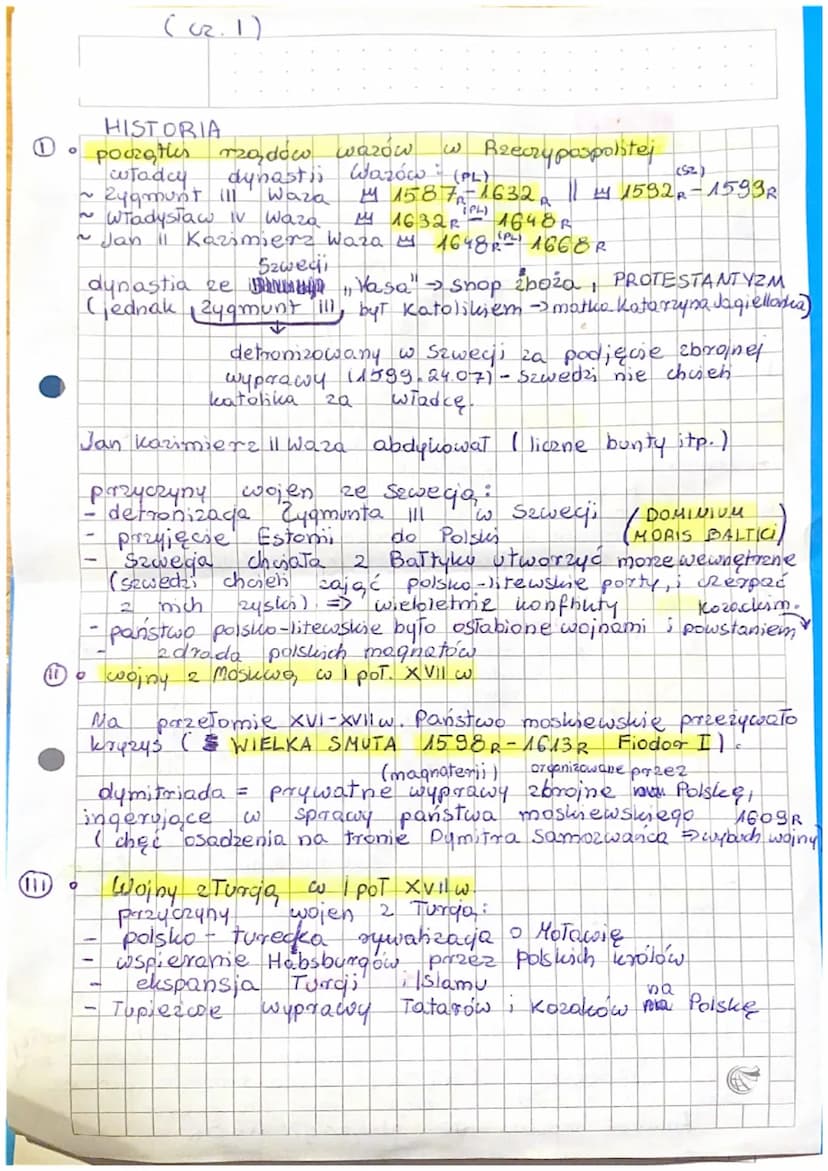 (cz. 1)
HISTORIA
I • początki rządów wazów w Rzeczypospolitej
władcy dynastii Wazów: (PL) (SZ)
~ Zygmunt III Waza 1587R-1632R || 1592R-1599R
~ Władysław IV Waza 1632R (PL) - 1648R
~ Jan II Kazimierz Waza 1648R (PL) - 1668R
Szwecji
dynastia ze "Vasa" → snop zboża, PROTESTANTYZM
(jednak, Zygmunt III, był katolikiem → matka Katarzyna Jagiellonka)
detronizowany w Szwecji za podjęcie zbrojnej
wyprawy (1599.24.07) - Szwedzi nie chcieli
katolika za władcę.
Jan Kazimierz II Waza abdykował (liczne bunty itp.)
przyczyny wojen ze Szwecją:
- detronizacja Zygmunta III w Szwecji (DOMINIUM
- przyjęcie Estonii do Polski MORIS BALTICI)
- Szwecja chciała z Bałtyku utworzyć morze wewnętrzne
(szwedzi chcieli zająć polsko-litewskie porty, i czerpać
z nich zyski). => wieloletnie konflikty kozackim.
- państwo polsko-litewskie było osłabione wojnami i powstaniem
- zdrada polskich magnatów
II • wojny z Moskwą w I poł. XVII w
Na przełomie XVI-XVII w. Państwo moskiewskie przeżywało
kryzys (WIELKA SMUTA 1598R-1613R Fiodor I).
(magnaterii) organizowane przez
dymitriada = prywatne wyprawy zbrojne Polskę,
ingerujące w sprawy państwa moskiewskiego 1609R
(chęć osadzenia na tronie Dymitra Samozwańca => wybuch wojny
III • Wojny z Turcją w I poł XVII w.
przyczyny wojen z Turcją:
- polsko - turecka rywalizacja o Moławię
- wspieranie Habsburgów przez polskich królów
- ekspansja Turcji i Islamu
na
- Łupieżcze wyprawy Tatarów i Kozaków Polskę